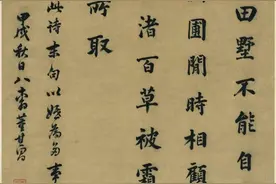 田墅不能自
圃閒時相顧
渚百草被霜
所取
此诗末句以婚为多事
甲戌秋日八十翁董其昌